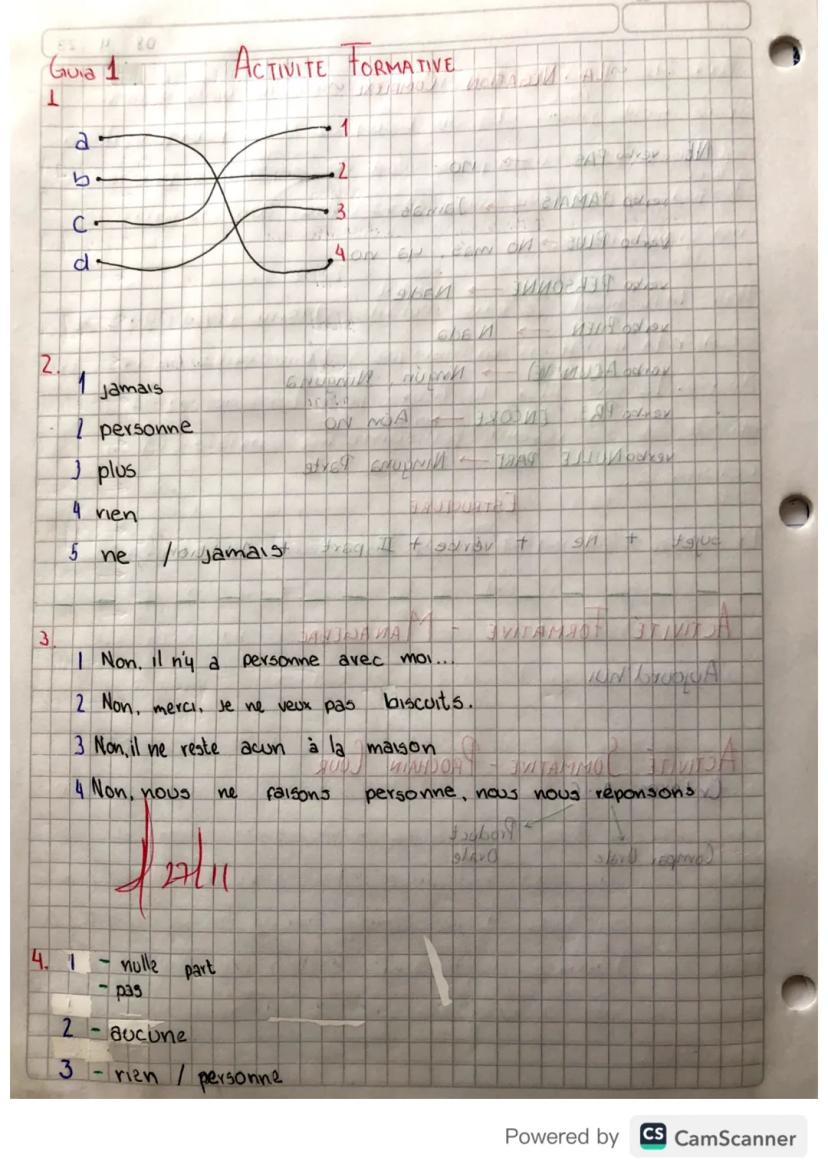 Guia 1 ACTIVITE FORMATIVE
1
a 1
b 2
c 3
d 4
2.
1 jamais
2 personne
3 plus
4 rien
5 ne / jamais
3.
1 Non, il n'y a personne avec moi...
2 Non, merci, Je ne veux pas biscuits.
3 Non, il ne reste acun à la maison
4 Non, nous ne faisons personne, nous nous réponsons
27/11
4. 1 - nulle part
- pas
2 - aucune
3 - rien / personne
Powered by CS CamScanner